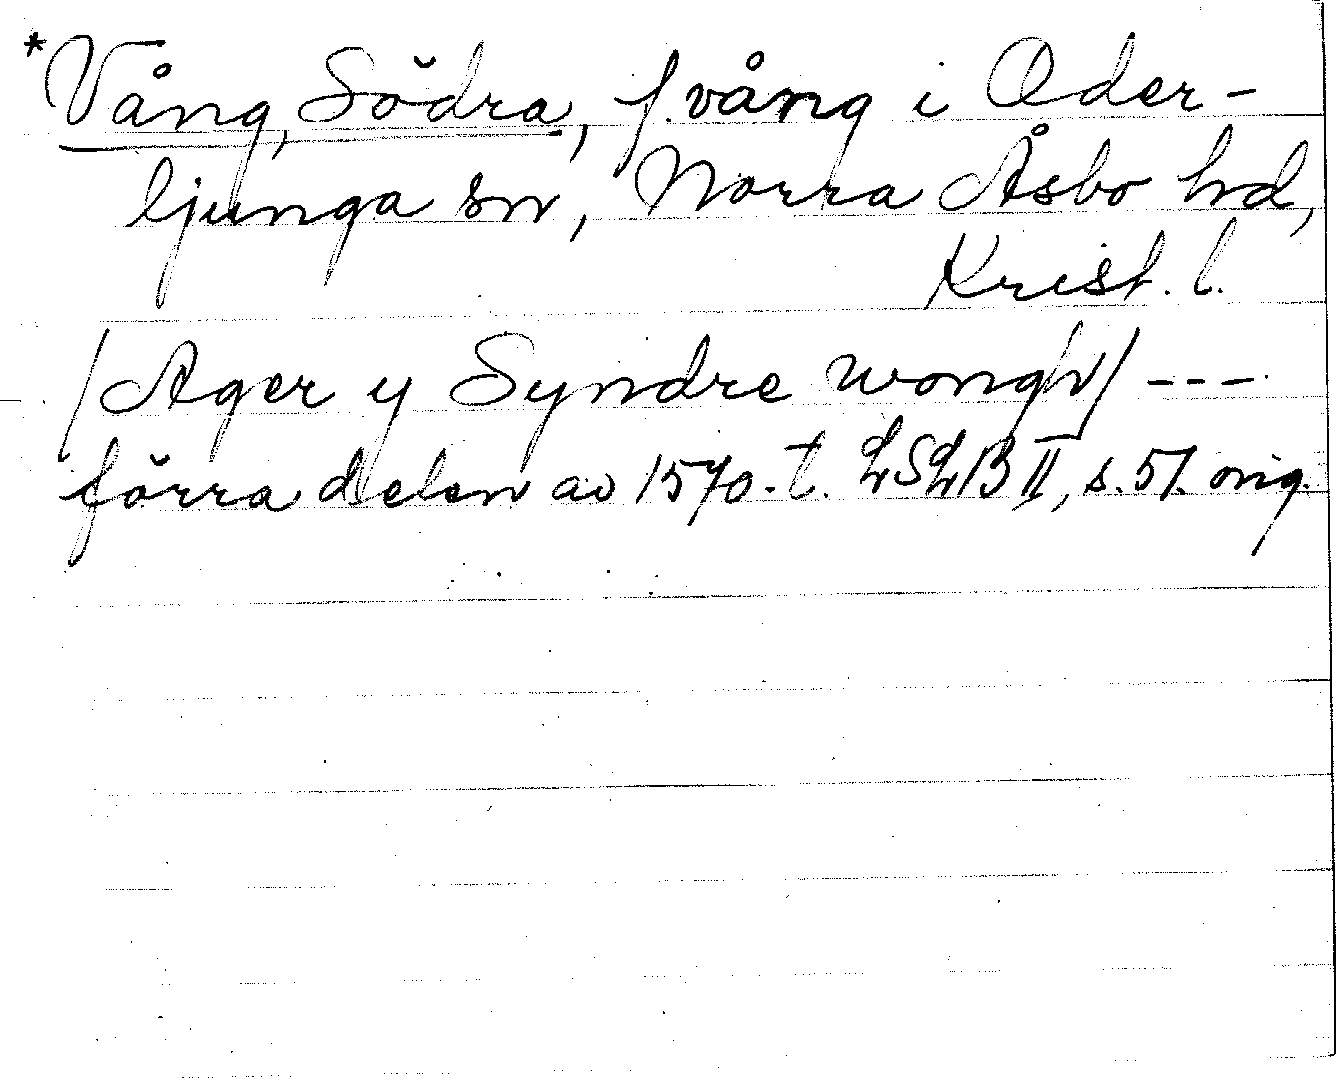 *Vång, Södra, f. vång i Oder-
ljunga sn, Norra Åsbo hd,
Krist. l.
/Ager y Syndre wongh/ ---
förra delen av 1570-t. LSLB II, s. 51. orig.